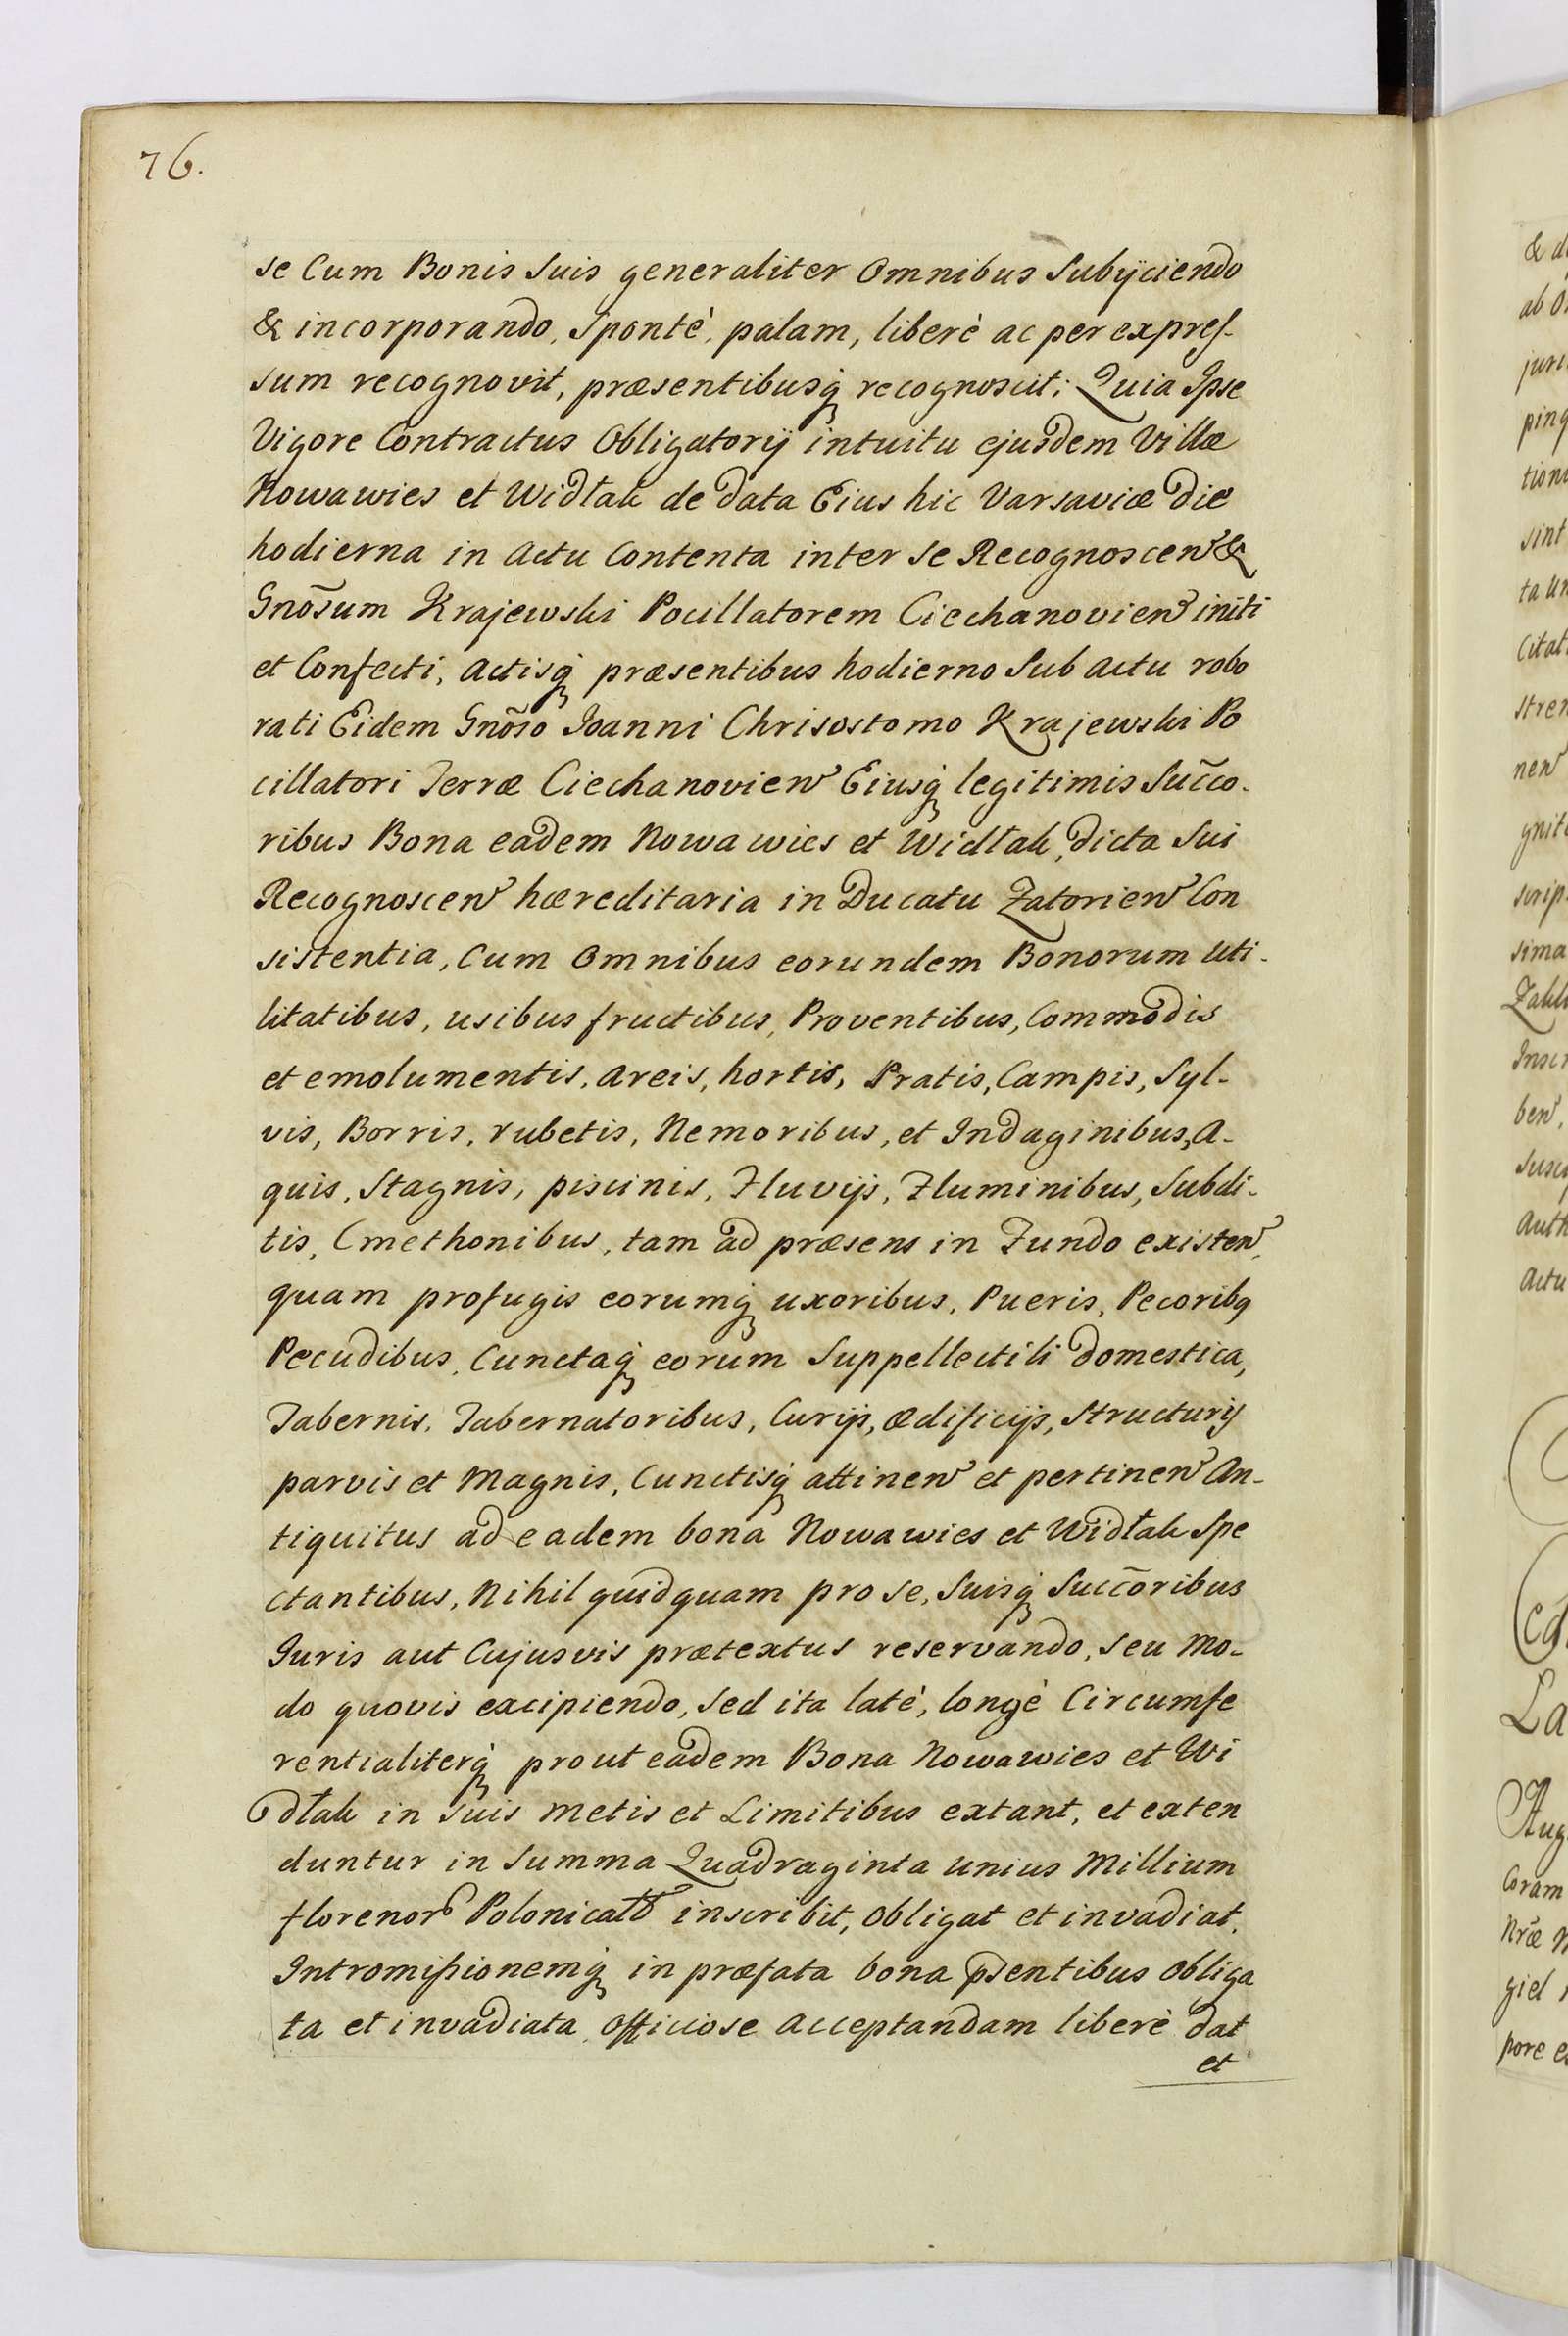 76.
se Cum Bonis Suis generaliter Omnibus Subÿciendo
& incorporando, Spontè, palam, liberè ac per expres-
sum recognovit, præsentibusq́ recognoscit; Quia Ipse
Vigore Contractus Obligatorÿ intuitu ejusdem Villæ
Nowawies et Widłak de data Eius hic Varsaviæ die
hodierna in Actu Contenta inter se Recognoscen &
Gnõsum Krajewski Pocillatorem Ciechanovien initi
et Confecti, Actisq́ præsentibus hodierno Sub actu robo
rati Eidem Gnõso Joanni Chrisostomo Krajewski Po
cillatori Terræ Ciechanovien Eiusq́ legitimis Succ̃o-
ribus Bona eadem Nowawies et Widłak, dicta Sui
Recognoscen hæreditaria in Ducatu Zatorien Con
sistentia, Cum Omnibus eorundem Bonorum Uti-
litatibus, usibus fructibus, Proventibus, Commodis
et emolumentis, Areis, hortis, Pratis, Campis, Syl-
vis, Borris, rubetis, Nemoribus, et Indaginibus, A-
quis, Stagnis, piscinis, Fluvÿs, Fluminibus, Subdi-
tis, Cmethonibus, tam ad præsens in Fundo existen,
quam profugis eorumq́ uxoribus, Pueris, Pecoribq
Pecudibus, Cunctaq́ eorum Suppellectili domestica,
Tabernis, Tabernatoribus, Curÿs, ædificÿs, Structuris
parvis et Magnis, Cunctisq́ attinen et pertinen An-
tiquitus ad eadem bona Nowawies et Widłak Spe
ctantibus, Nihil quidquam pro se, Suisq́ Succ̃oribus
Juris aut Cujusvis prætextus reservando, seu Mo-
do quovis excipiendo, Sed ita latè, longè Circumfe
rentialiterq́ prout eadem Bona Nowawies et Wi
dłak in Suis Metis et Limitibus extant, et exten
duntur in Summa Quadraginta unius Millium
florenor Polonical inscribit, Obligat et invadiat,
Intromissionemq́ in præfata bona psentibus Obliga
ta et invadiata, Officiose Acceptandam liberè dat
et